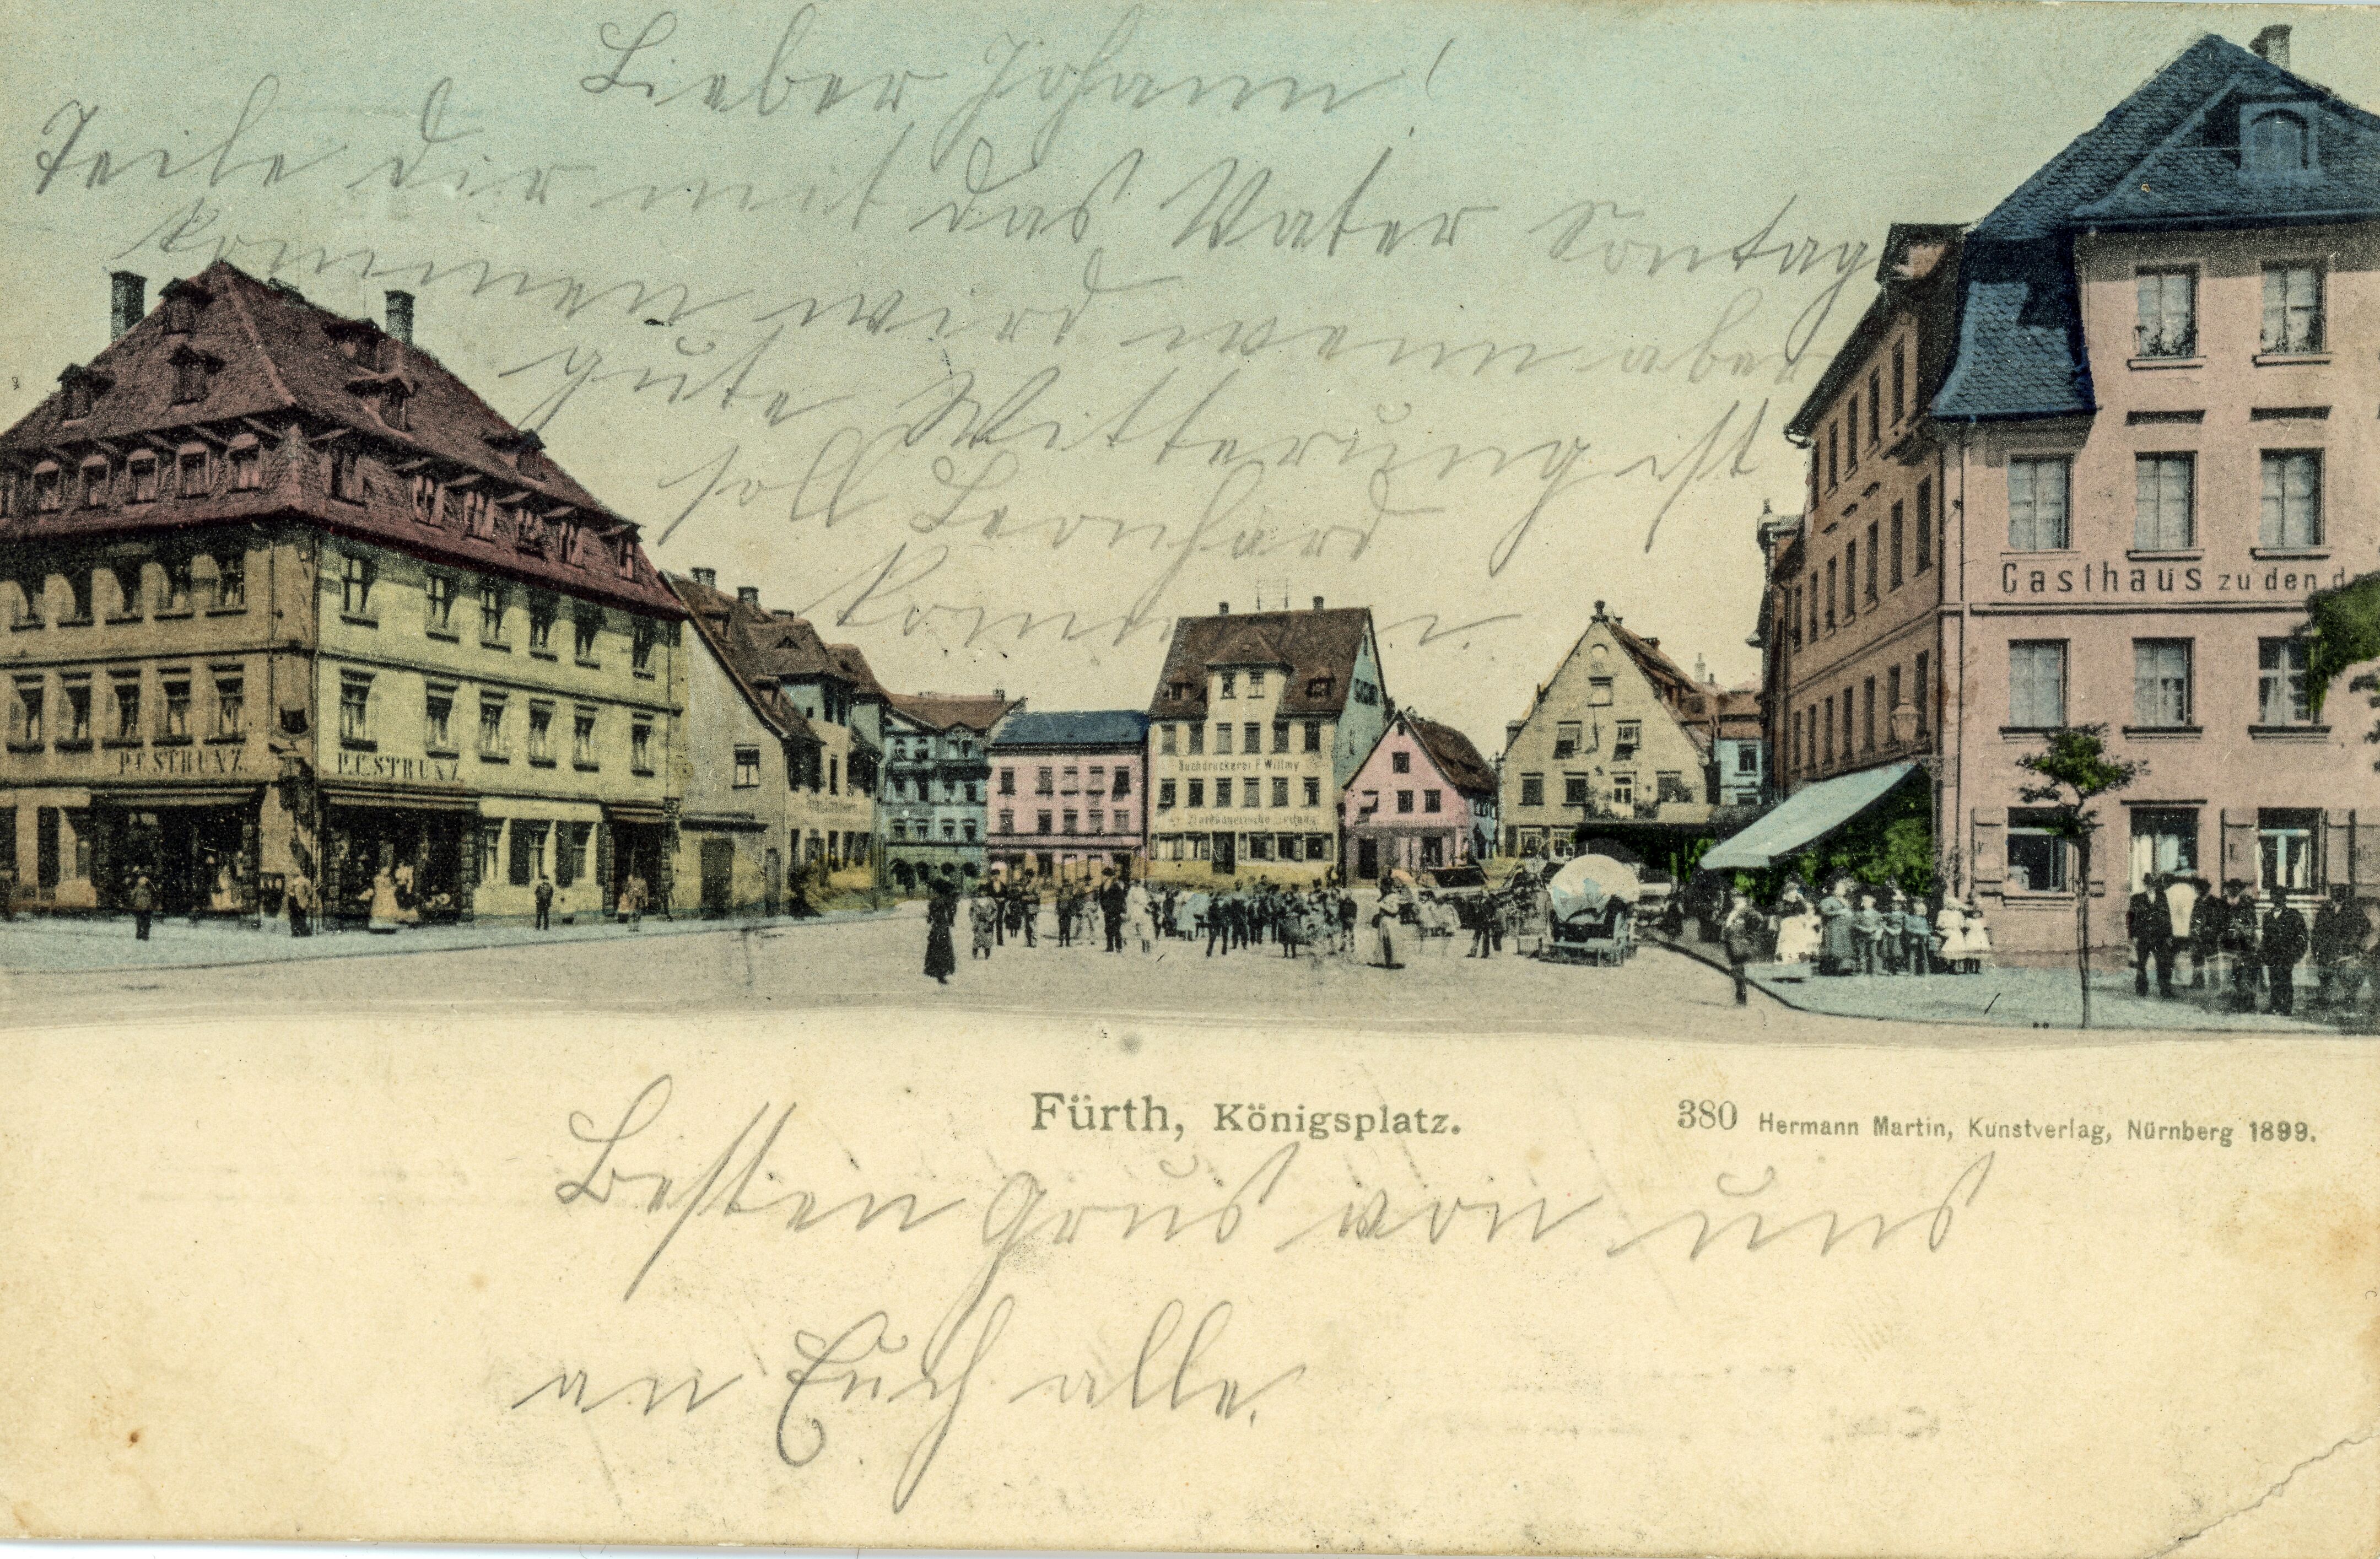 Lieber Johann!
Teile dir mit das Vater Sontag
kommen wird wenn aber
gute Witterung ist
soll Leonhard
kommen.
P.C.STRUNZ.
P.C.STRUNZ.
Buchdruckerei F. Willmy
Nordbayerische Zeitung
Gasthaus zu den
Fürth, Königsplatz.
380 Hermann Martin, Kunstverlag, Nürnberg 1899.
Besten Grus von uns
an Euch alle.